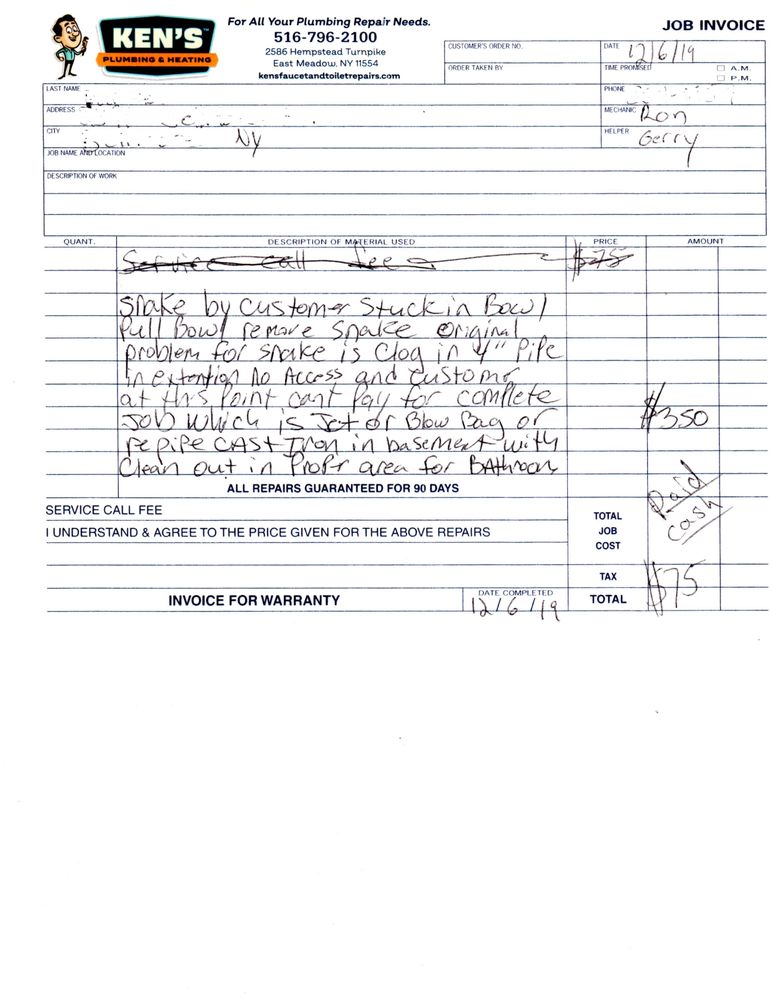 KEN'S
PLUMBING & HEATING
For All Your Plumbing Repair Needs.
516-796-2100
2586 Hempstead Turnpike
East Meadow, NY 11554
kensfaucetandtoiletrepairs.com
JOB INVOICE
CUSTOMER'S ORDER NO.
DATE 12/6/19
ORDER TAKEN BY
TIME PROMISED A.M.
P.M.
LAST NAME
PHONE
ADDRESS
MECHANIC Ron
CITY NY
HELPER Gerry
JOB NAME AND LOCATION
DESCRIPTION OF WORK
QUANT. DESCRIPTION OF MATERIAL USED PRICE AMOUNT
Service call fee $75
Snake by customer Stuck in Bowl
Pull Bowl remove Snake original
problem for snake is Clog in 4" Pipe
in extention No Access and customer
at this Point cant Pay for complete
JOB which is Jet or Blow Bag or $350
repipe CAST Iron in basement with
Clean out in Propr area for BAthroom
ALL REPAIRS GUARANTEED FOR 90 DAYS
SERVICE CALL FEE
I UNDERSTAND & AGREE TO THE PRICE GIVEN FOR THE ABOVE REPAIRS
TOTAL
JOB
COST
Paid
cash
TAX
INVOICE FOR WARRANTY
DATE COMPLETED
12/6/19
TOTAL $75